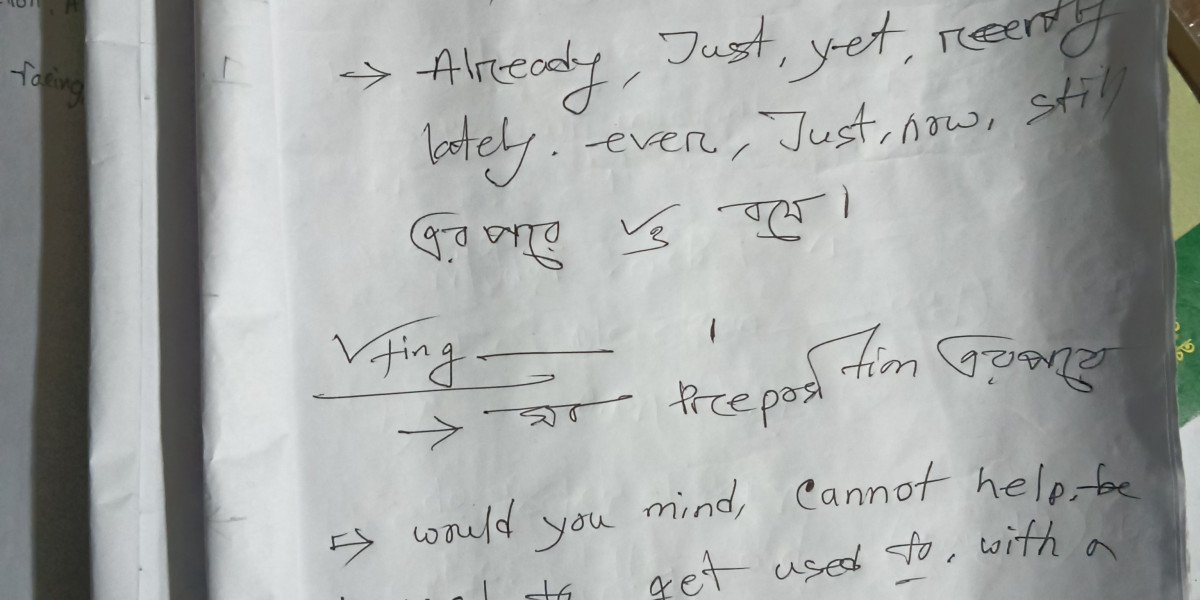 facing
→ Already, Just, yet, recently
lately. ever, Just, now, still
এর পরে V3 বসে।
V+ing
→ সব Preposition এর পরে
⇒ would you mind, Cannot help, be
to get used to, with a